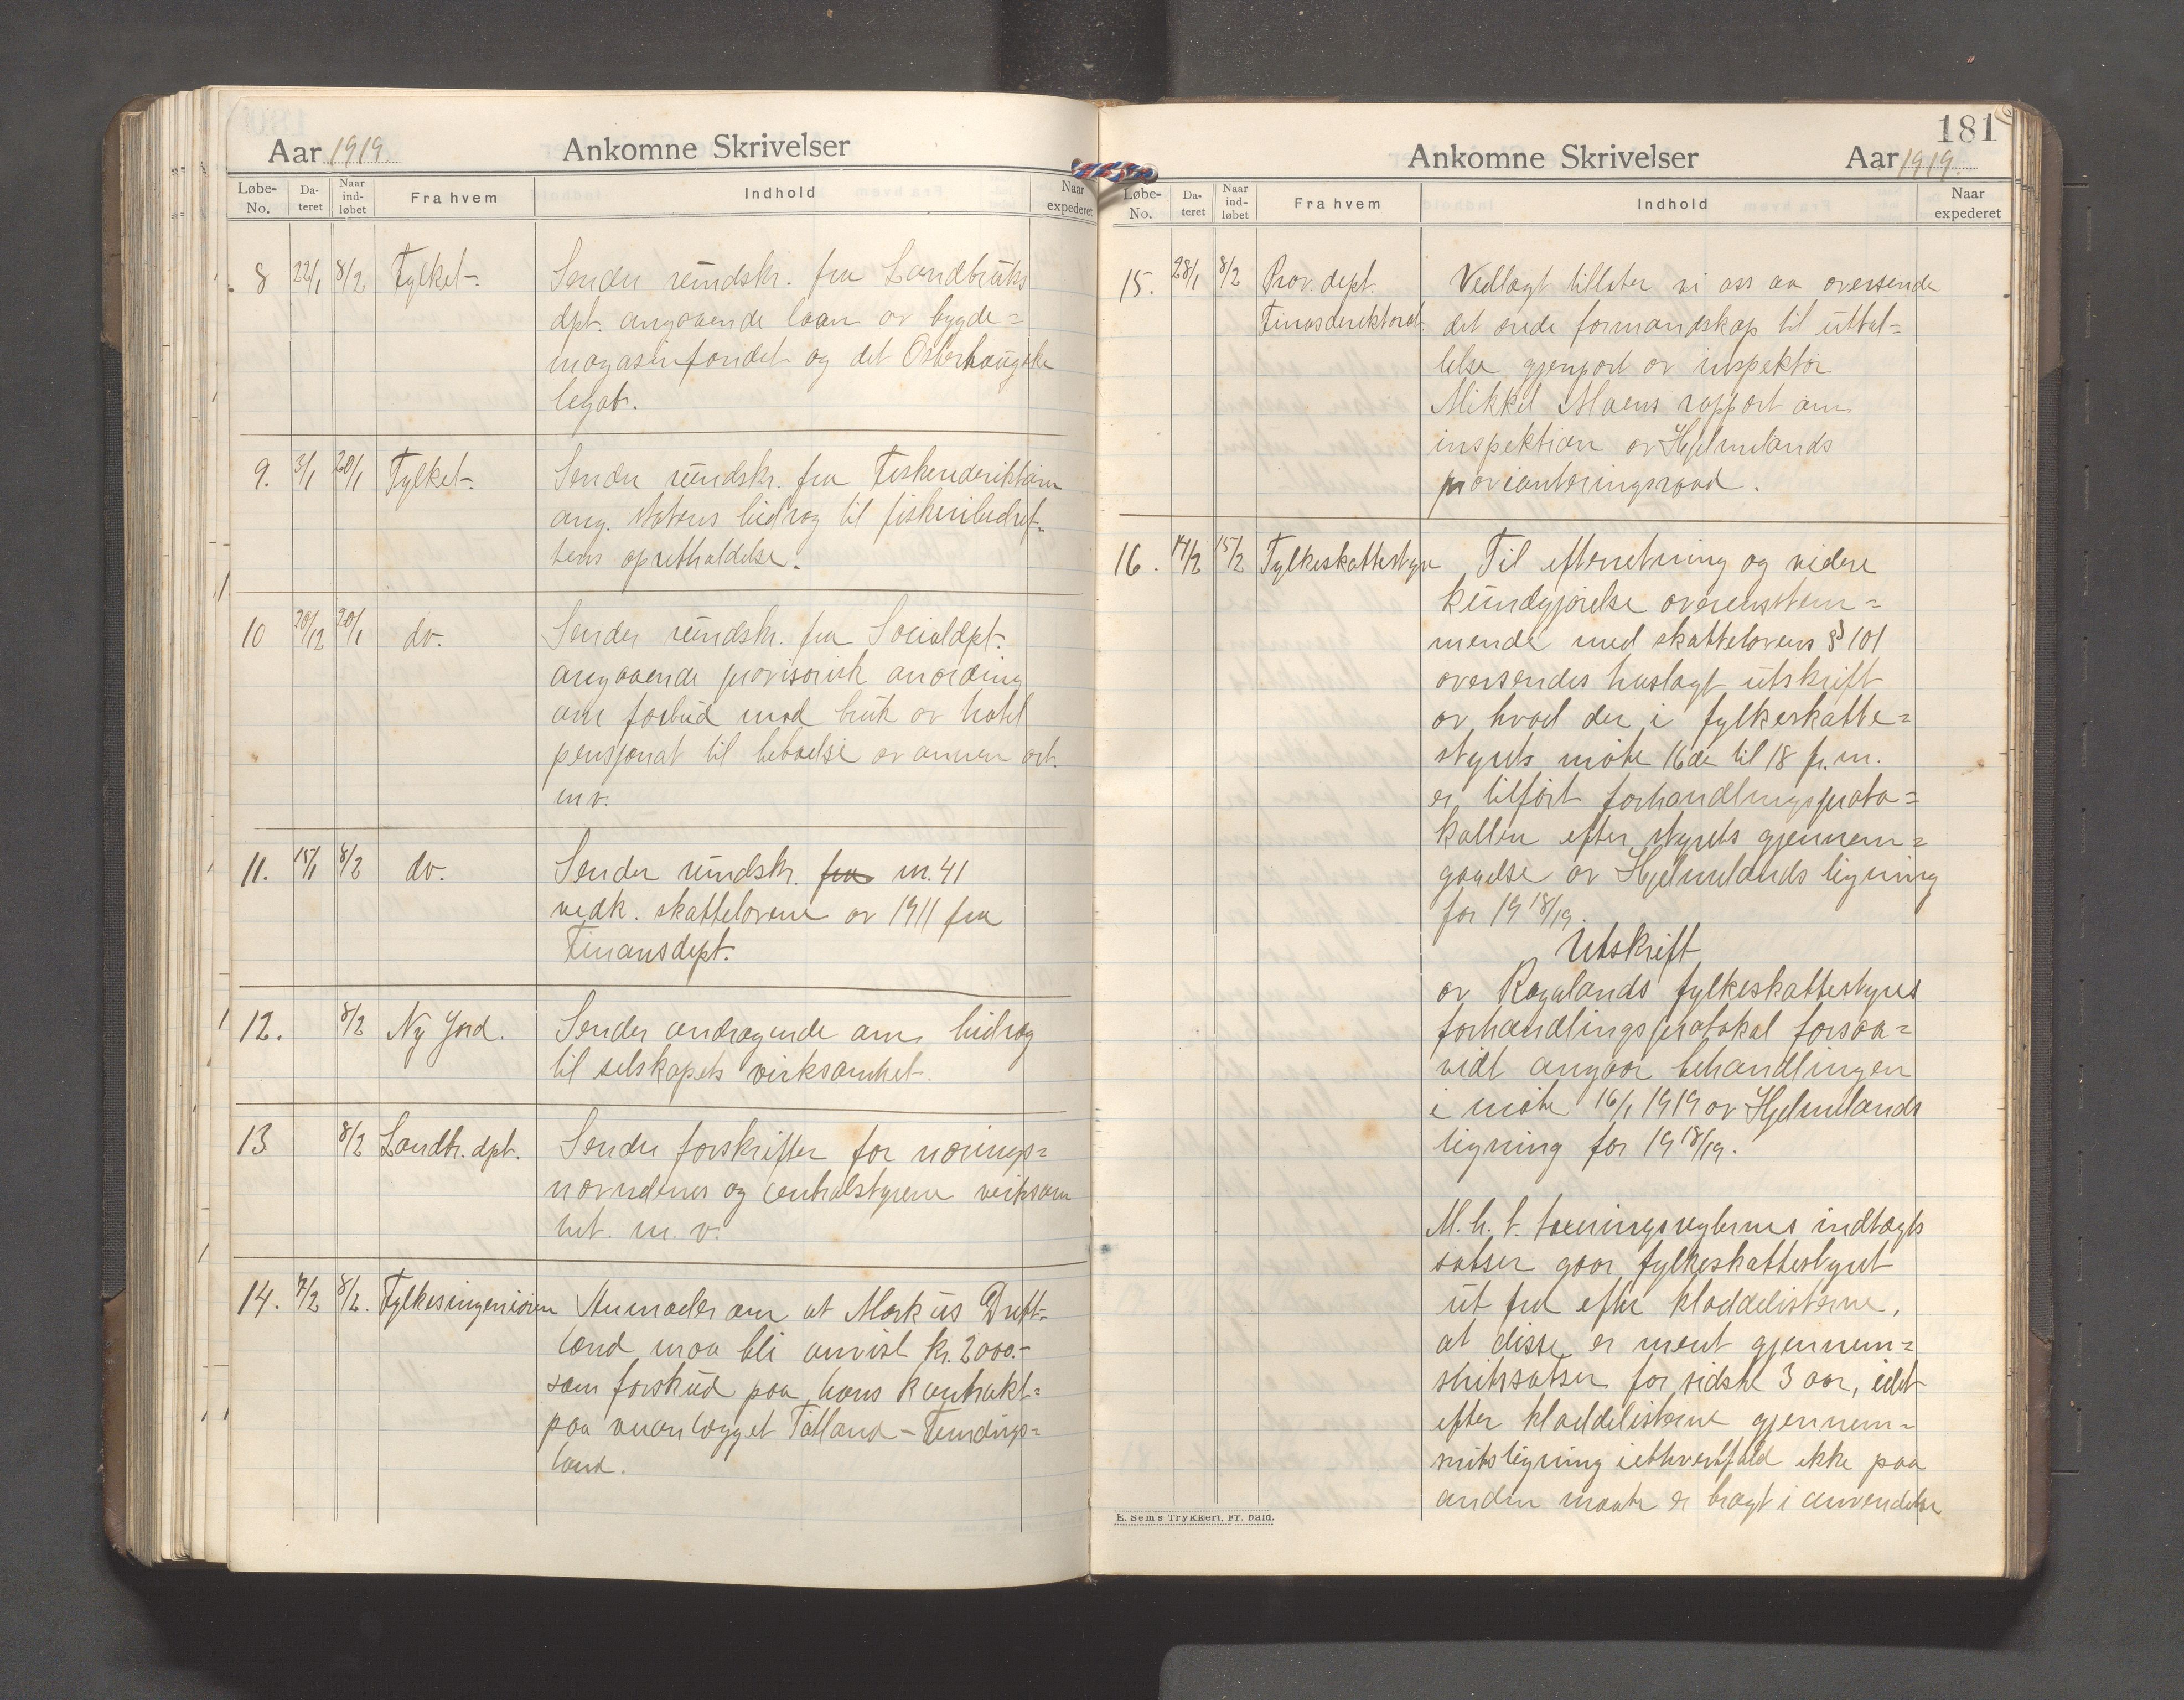 Aar 1919 Ankomne Skrivelser
Løbe-No. Da-teret Naar ind-løbet Fra hvem Indhold Naar expederet
8 22/1 8/2 Fylket. Sender rundskr. fra Landbruks
dpt. angaaende laan av bygde=
magasinfondet og det Osterhaugske
legat.
9. 3/1 20/1 Fylket. Sender rundskr. fra Fiskeridirektøren
ang. statens bidrag til fiskeribedrif-
tens opretholdelse.
10 20/12 20/1 do. Sender rundskr. fra Socialdpt.
angaaende provisorisk anording
om forbud mod bruk av hotel
pensjonat til beboelse av annen art.
m v.
11. 15/1 8/2 do. Sender rundskr. fra nr. 41
vedk. skattelovene av 1911 fra
Finansdept.
12. 8/2 Ny Jord. Sender andragende om bidrag
til selskapets virksomhet.
13 8/2 Landbr. dpt. Sender forskrifter for nærings=
nævndenes og centralstyrene virksom
het. m. v.
14. 7/2 8/2. Fylkesingeniøren Anmoder om at Markus Drift-
land maa bli anvist kr. 2000.-
som forskud paa hans kontrakt=
paa veianlægget Tøtland - Fundings=
land.
181
Ankomne Skrivelser Aar 1919.
Løbe-No. Da-teret Naar ind-løbet Fra hvem Indhold Naar expederet
15. 28/1 8/2 Prov. dept. Vedlagt tillater vi oss aa oversende
det ærede formandskap til uttal=
lelse gjenpart av inspektør
Mikkel Moens rapport om
inspektion av Hjelmelands
provianteringsraad.
16. 14/2 15/2 Fylkeskattestyre Til efterretning og videre
kundgjørelse overensstem=
mende med skattelovens § 101
oversendes hoslagt utskrift
av hvad der i fylkeskatte=
styrets møte 16de til 18 f. m.
er tilført forhandlingsproto=
kollen efter styrets gjennem=
gaaelse av Hjelmelands ligning
for 1918/19.
Utskrift
av Rogalands fylkeskattestyres
forhandlingsprotokol forsaa=
vidt angaar behandlingen
i møte 16/1 1919 av Hjelmelands
ligning for 1918/19.
M. h. t. taxeringsreglernes indtægts
satser gaar fylkeskattestyret
ut fra efter kladdelisterne,
at disse er ment gjennem=
snitssatser for sidste 3 aar, idet
efter kladdelisterne gjennem=
snitsligning iethvertfald ikke paa
anden maate er bragt i anvendelse
E. Sem's Trykkeri, Fr. hald.